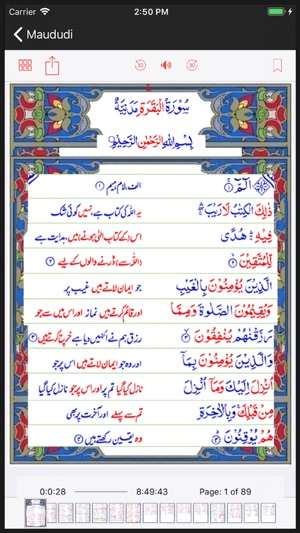 Carrier 2:50 PM
Maududi
30 30
سُوْرَةُ الْبَقَرَةِ مَدَنِيَّةٌ
بِسْمِ اللّٰهِ الرَّحْمٰنِ الرَّحِيْمِ
الٓمّٓ ۚ ۱ الف، لام، میم ۱
ذٰلِكَ الْكِتٰبُ لَا رَيْبَ ۛ یہ اللہ کی کتاب ہے، نہیں کوئی شک
فِيْهِ ۛ هُدًى اس (کے کتاب الٰہی ہونے) میں، ہدایت ہے
لِّلْمُتَّقِيْنَ ۲ (اللہ سے) ڈرنے والوں کے لیے ۲
الَّذِيْنَ يُؤْمِنُوْنَ بِالْغَيْبِ جو ایمان لاتے ہیں غیب پر
وَيُقِيْمُوْنَ الصَّلٰوةَ وَمِمَّا اور قائم کرتے ہیں نماز اور اس میں سے جو
رَزَقْنٰهُمْ يُنْفِقُوْنَ ۳ رزق ہم نے انہیں دیا ہے خرچ کرتے ہیں ۳
وَالَّذِيْنَ يُؤْمِنُوْنَ بِمَآ اور وہ جو ایمان لاتے ہیں اس پر جو
اُنْزِلَ اِلَيْكَ وَمَآ اُنْزِلَ نازل کیا گیا تم پر اور اس پر جو نازل کیا گیا
مِنْ قَبْلِكَ وَبِالْاٰخِرَةِ تم سے پہلے اور آخرت پر بھی
هُمْ يُوْقِنُوْنَ ۴ وہ یقین رکھتے ہیں ۴
0:0:28 8:49:43 Page: 1 of 89